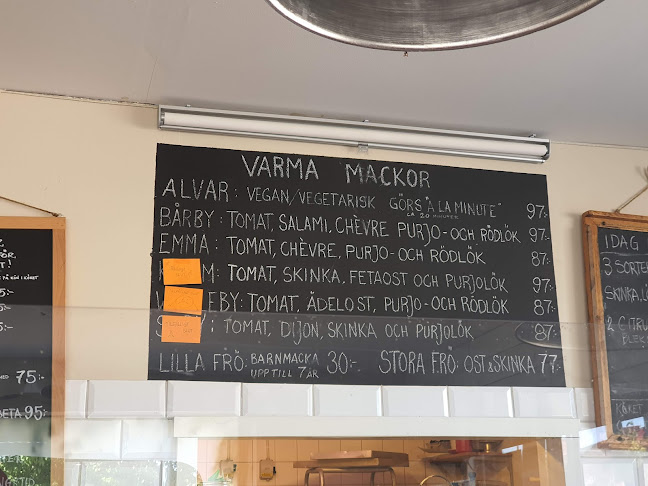 VARMA MACKOR
ALVAR: VEGAN/VEGETARISK GÖRS "A LA MINUTE" 97:-
CA 20 MINUTER
BÅRBY: TOMAT, SALAMI, CHÈVRE PURJO- OCH RÖDLÖK 97:-
EMMA: TOMAT, CHÈVRE, PURJO- OCH RÖDLÖK 87:-
M: TOMAT, SKINKA, FETAOST OCH PURJOLÖK 97:-
EBY: TOMAT, ÄDELOST, PURJO- OCH RÖDLÖK 87:-
TOMAT, DIJON, SKINKA OCH PURJOLÖK 87:-
LILLA FRÖ: BARNMACKA 30:- STORA FRÖ: OST & SKINKA 77:-
UPP TILL 7 ÅR
75:-
95:-
IDAG
3 SORTER
SKINKA,
2 CITRU
KÖKET